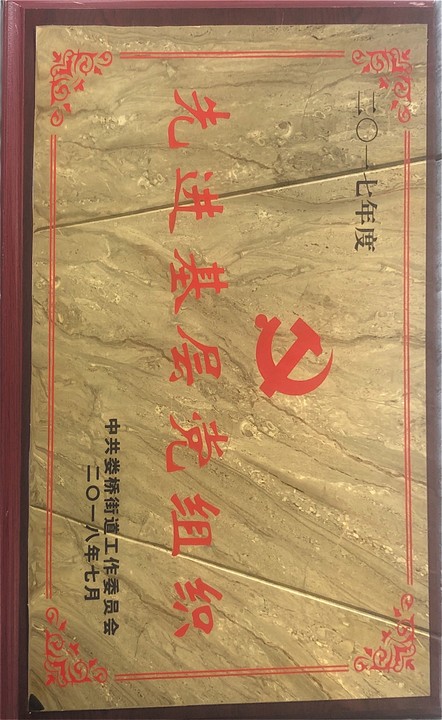 二〇一七年度
先进基层党组织
中共娄桥街道工作委员会
二〇一八年七月